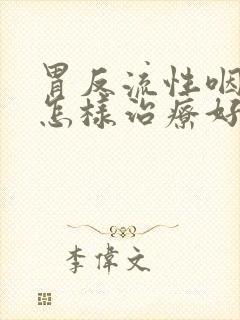 胃反流性咽
怎樣治療好
李偉文